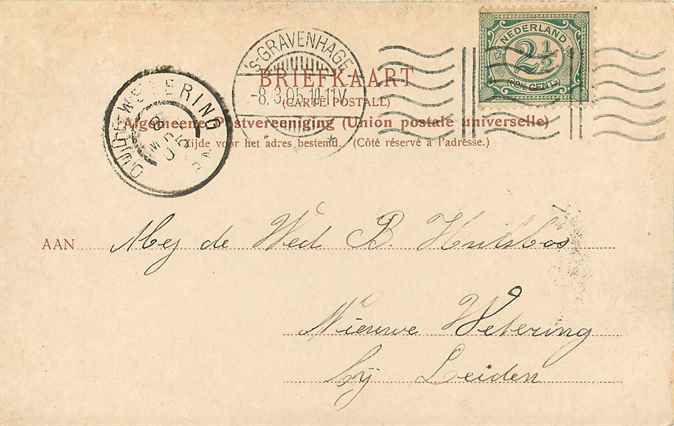 'S-GRAVENHAGE
-8.3.05.10-11V
NEDERLAND
2½
CENT
OUDE-WETERING
8
BRIEFKAART
(CARTE POSTALE)
Algemeene Postvereeniging (Union postale universelle)
Zijde voor het adres bestemd. (Côté réservé à l'adresse.)
AAN Mej de Wed. B. Hulsbos
Nieuwe Wetering
bij Leiden